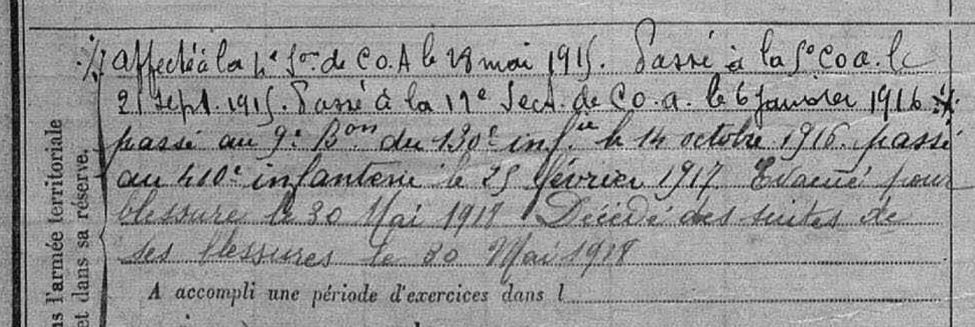 Affecté à la 4e Son de C.O.A le 28 mai 1915. Passé à la 5e Coa. le
25 sept. 1915. Passé à la 19e Sect. de Co. a. le 6 Janvier 1916
passé au 9e Bon du 130e infie le 14 octobre 1916. passé
au 410e infanterie le 25 février 1917 Evacué pour
blessure le 30 Mai 1918 Décédé des suites de
ses blessures le 30 Mai 1918
A accompli une période d'exercices dans l
l'armée territoriale
et dans sa réserve.